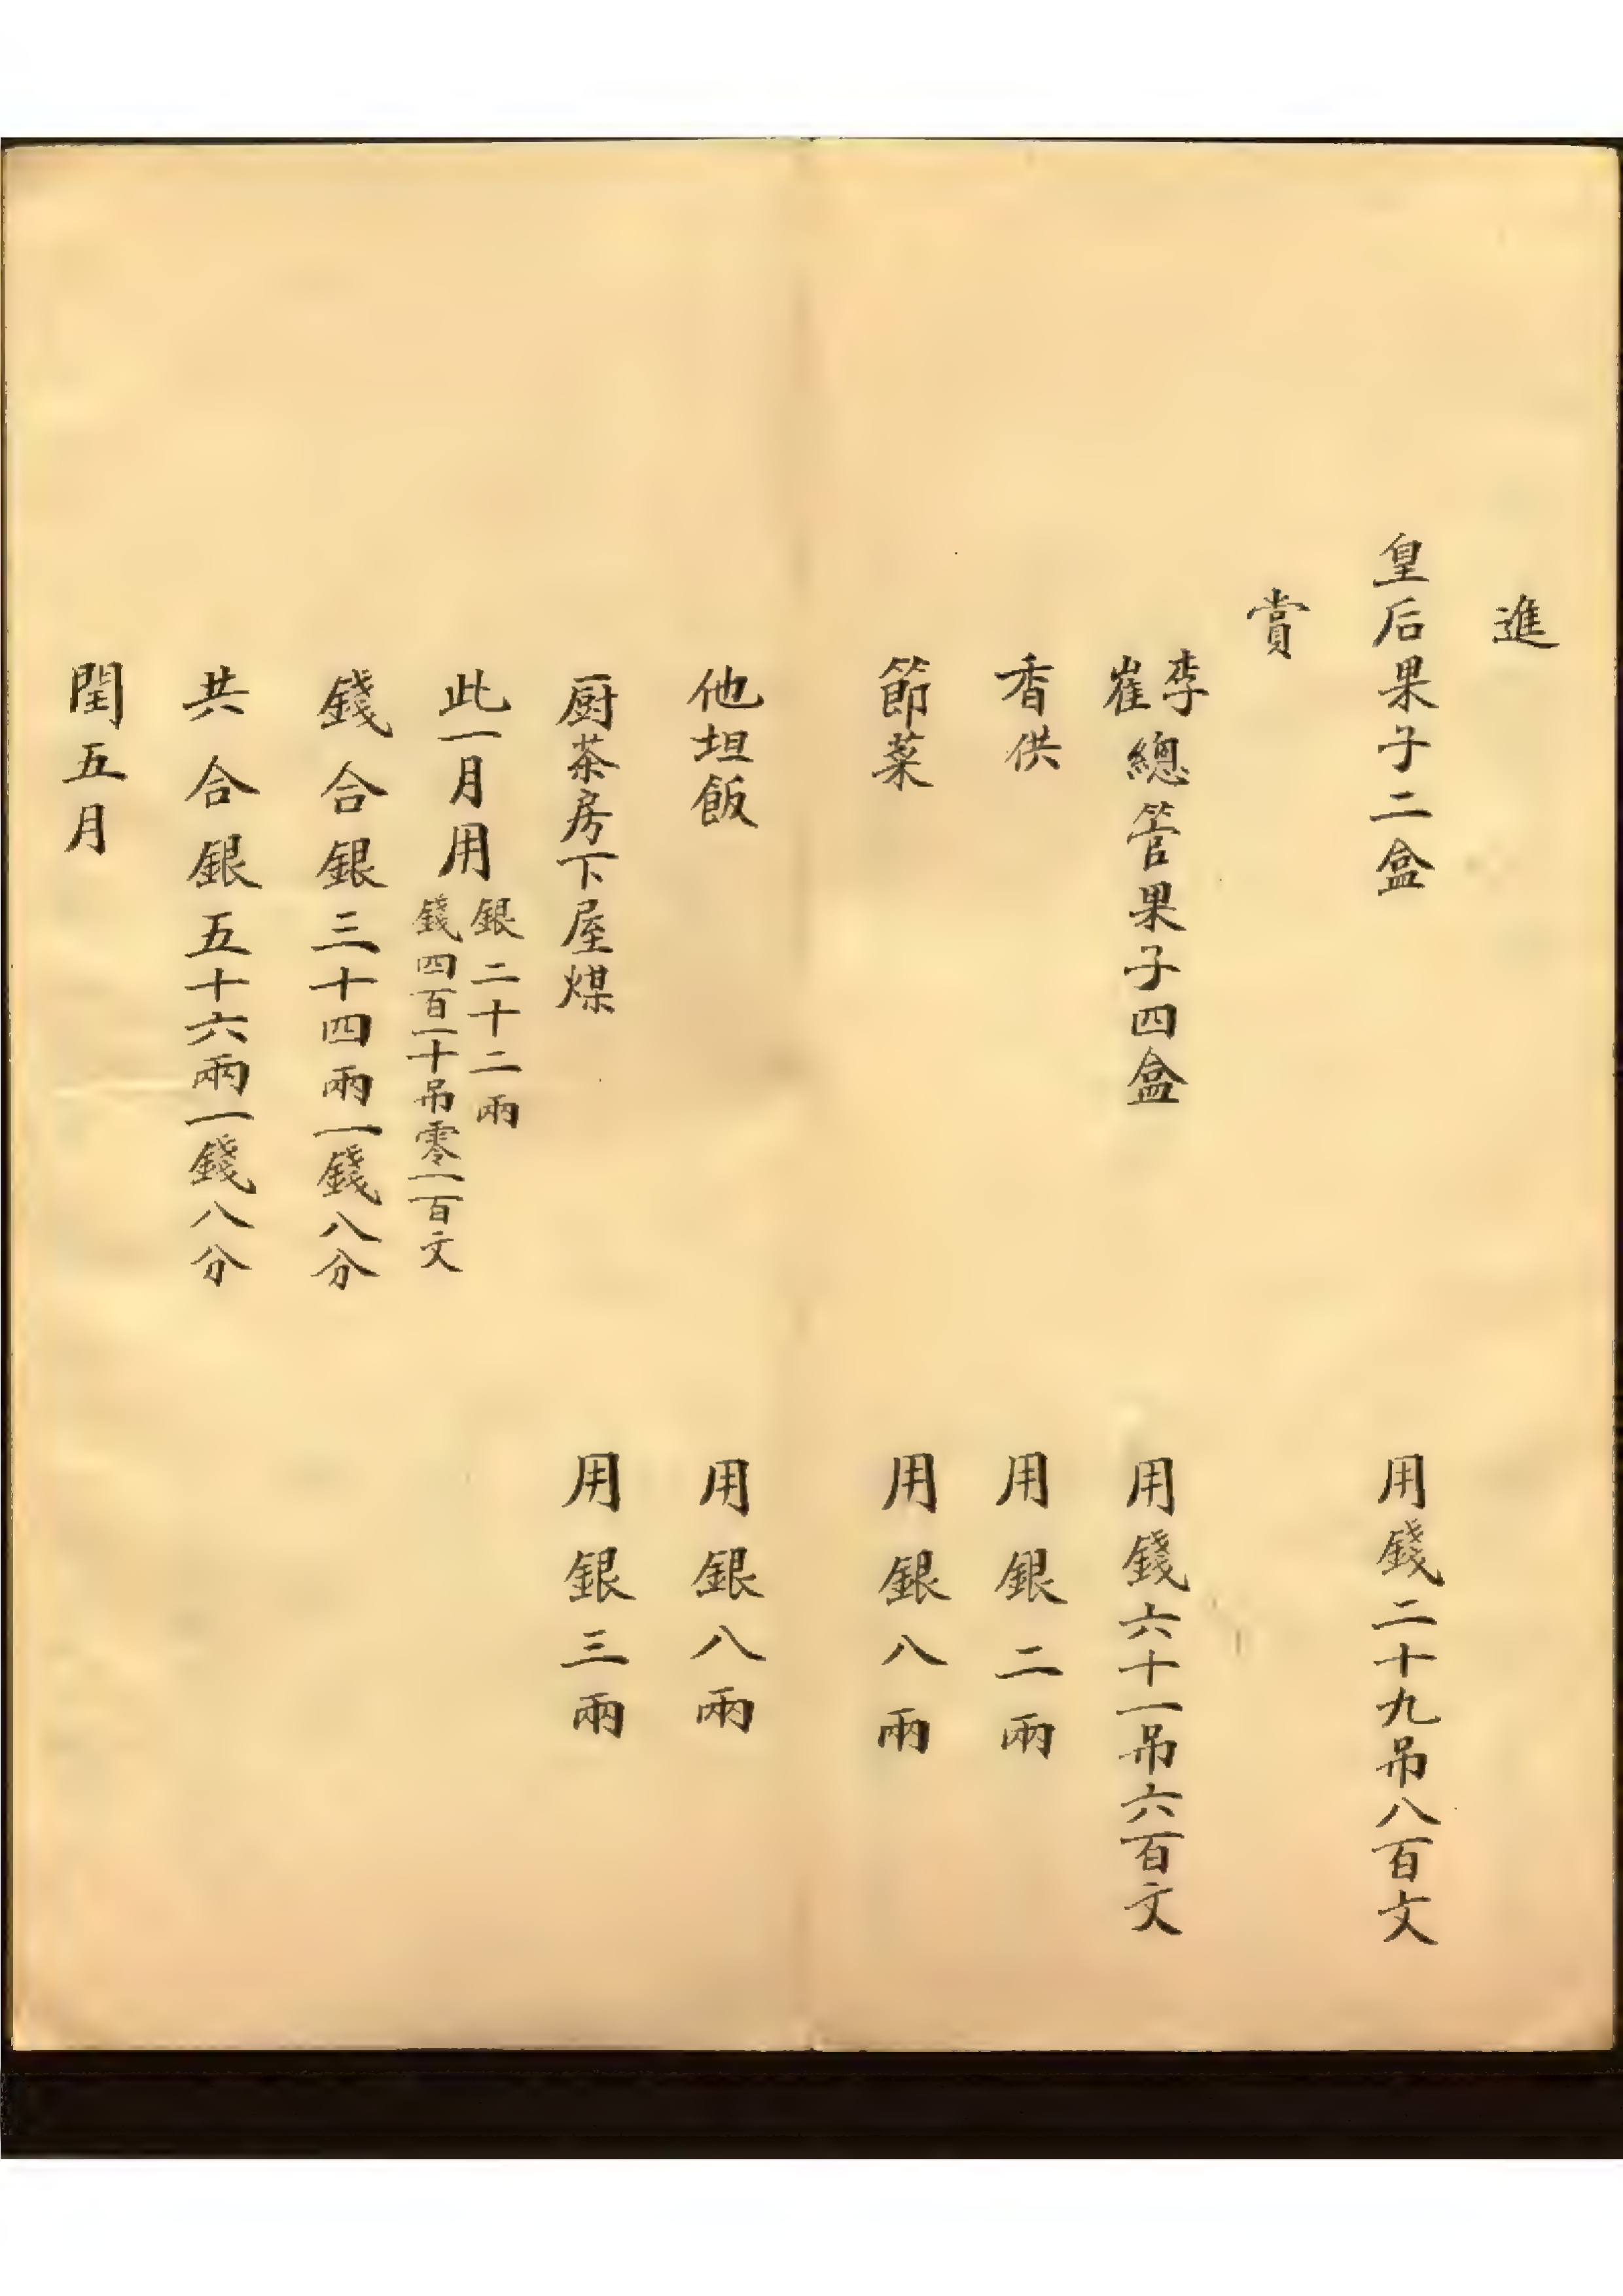 進
皇后果子二盒 用錢二十九吊八百文
賞
李崔總管果子四盒 用錢六十一吊六百文
香供 用銀二兩
節菜 用銀八兩
他坦飯 用銀八兩
厨茶房下屋煤 用銀三兩
此一月用銀二十二兩錢四百一十吊零一百文
錢合銀三十四兩一錢八分
共合銀五十六兩一錢八分
閏五月